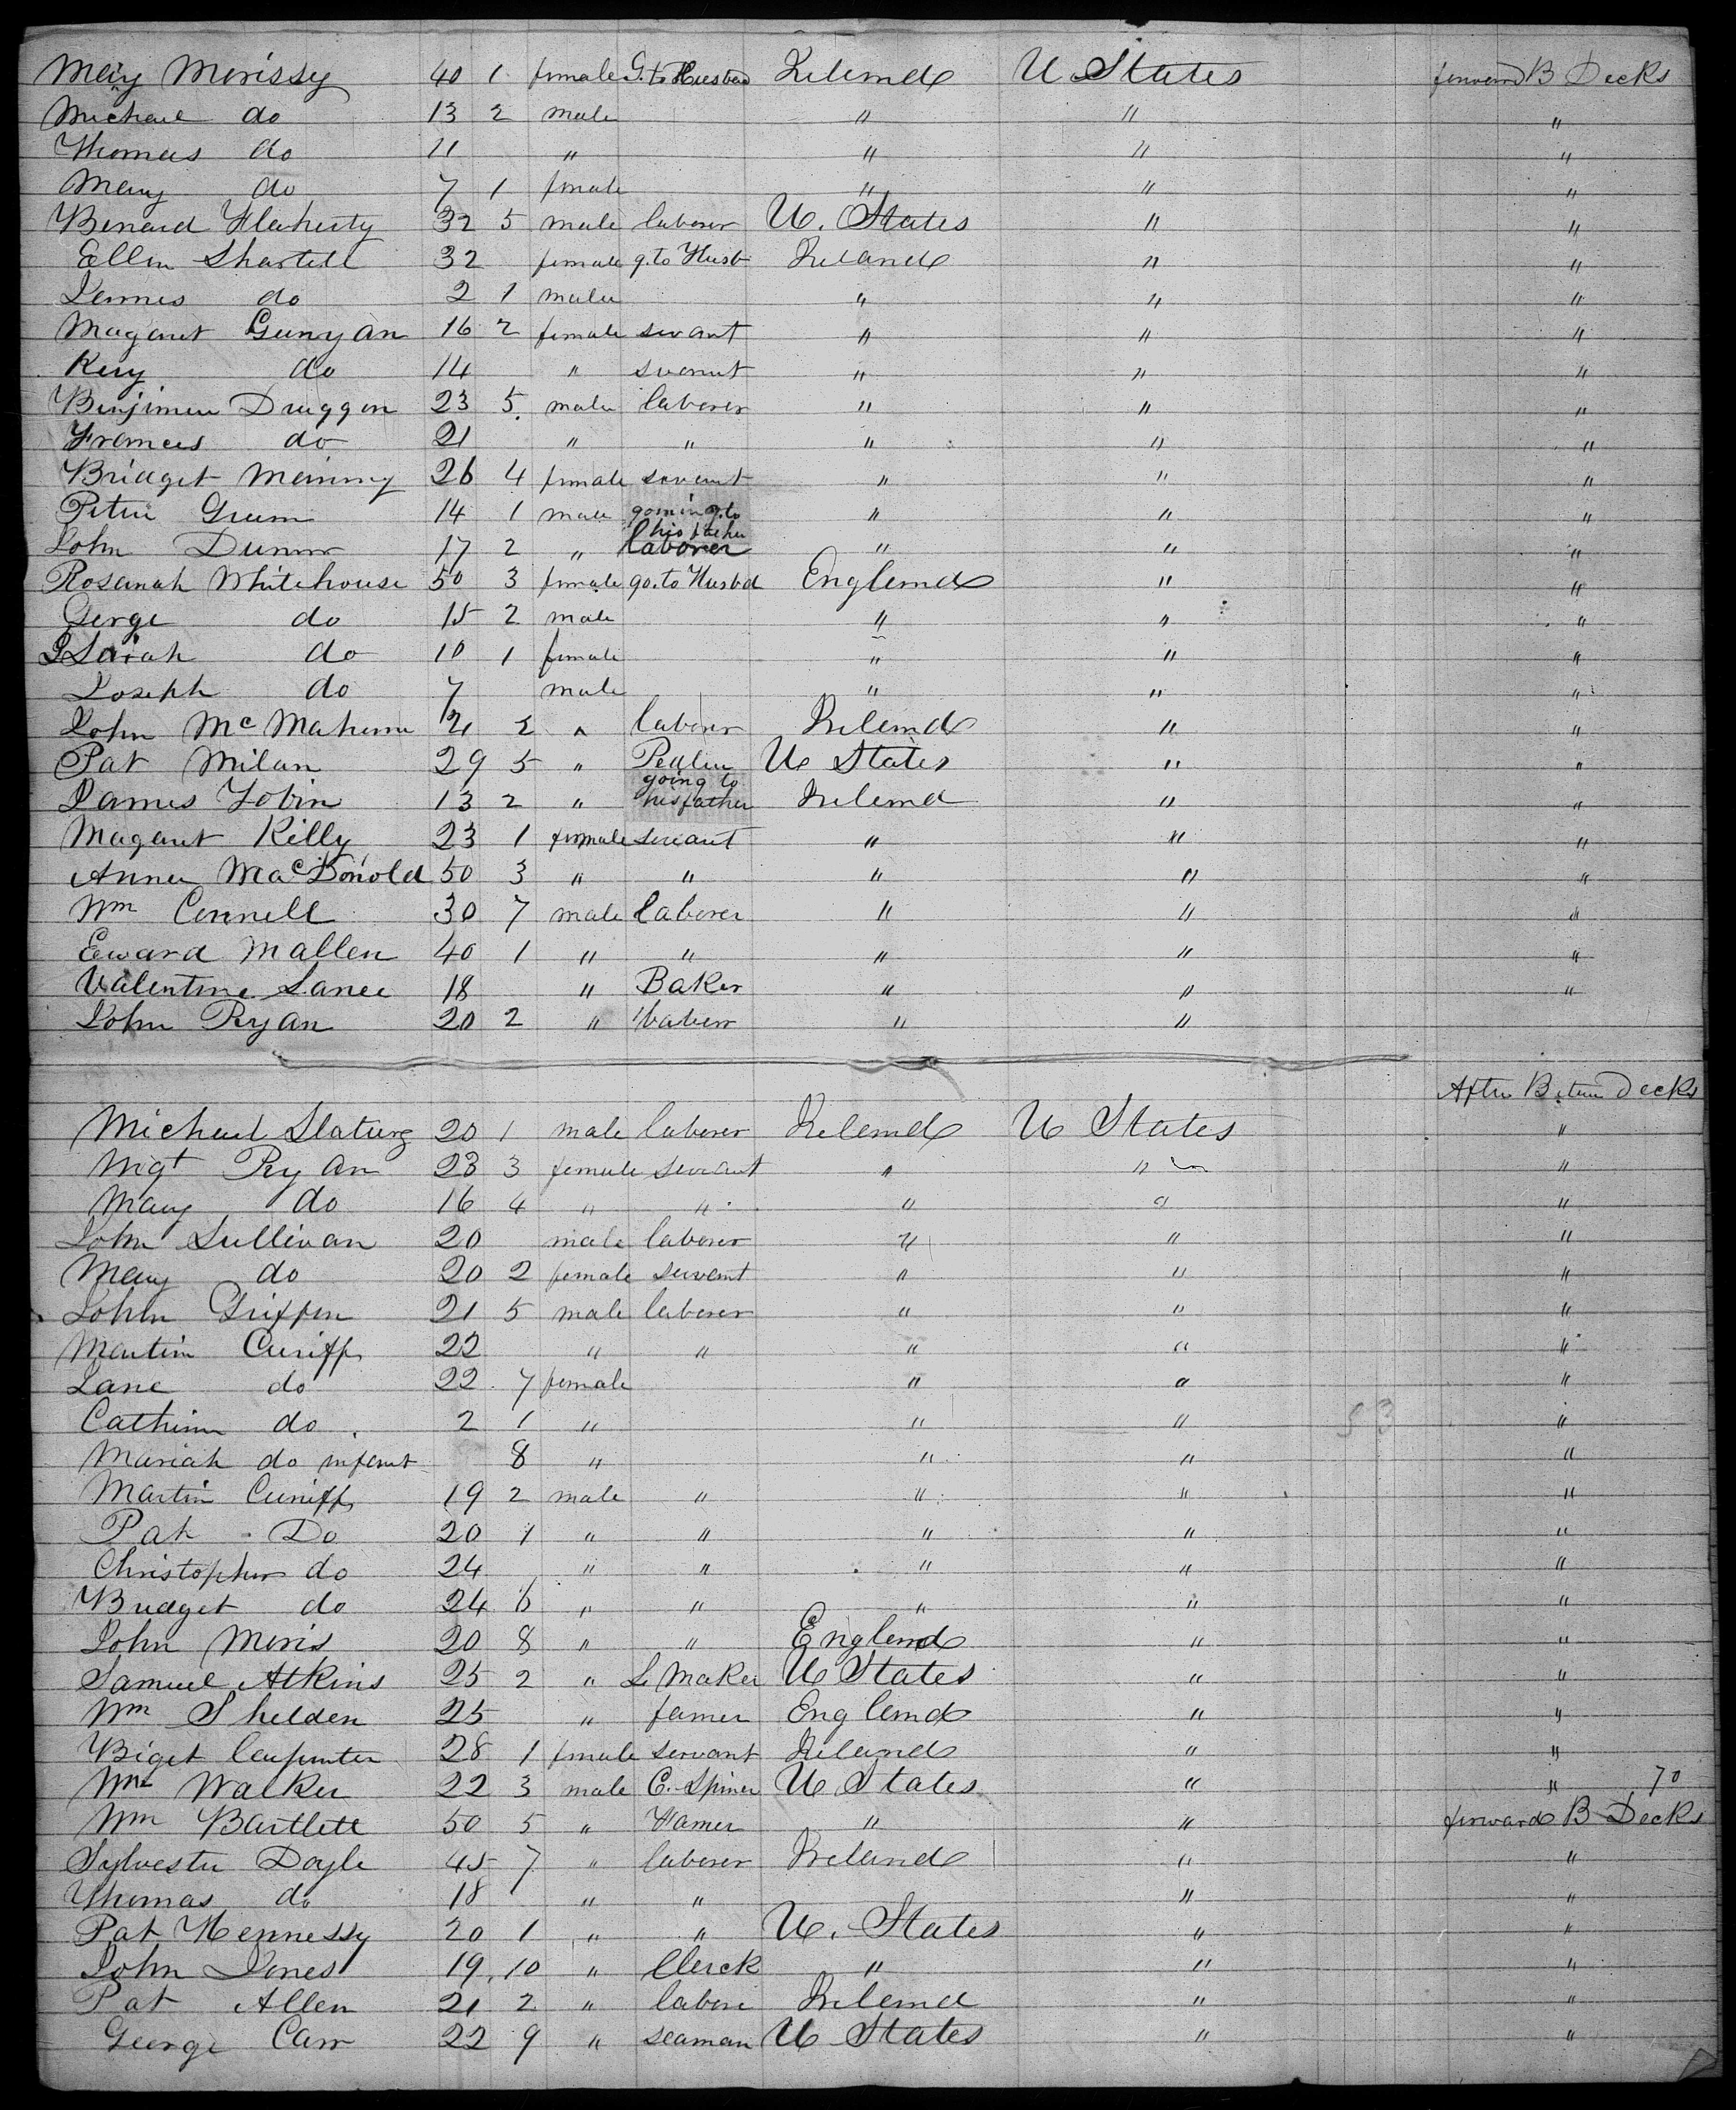 Mary Morissy 40 1 female G. to Husban Ireland U States forward B Decks
Michael do 13 2 male " " "
Thomas do 11 " " " "
Mary do 7 1 female " " "
Benard Flaherty 32 5 male laborer U. States " "
Ellen Shartell 32 female g. to Husb Ireland " "
James do 2 1 male " " "
Magaret Gunyan 16 2 female servant " " "
do 14 " servant " " "
Benjimen Druggon 23 5. male laborer " " "
Frances do 21 " " " " "
Bridget 26 4 female servant " " "
Peter 14 1 male going to his father " " "
John 17 2 " laborer " " "
Rosanah Whitehouse 50 3 female go. to Husbd England " "
Gerge do 15 2 male " " "
Sarah do 10 1 female " " "
Joseph do 7 male " " "
John Mc Mahon 21 2 " laborer Ireland " "
Pat Milan 29 5 " Pedler U States " "
James Tobin 13 2 " going to his father Ireland " "
Magaret Killy 23 1 female servant " " "
Anne MacDonold 50 3 " " " " "
Wm Connell 30 7 male laborer " " "
Eward Mallen 40 1 " " " " "
Valentine Lanee 18 " Baker " " "
John Ryan 20 2 " laborer " "
After Betwn Decks
Michael 20 1 male laborer Ireland U States "
Mgt Ryan 23 3 female servant " " "
Mary do 16 4 " " " " "
John Sullivan 20 male laborer " " "
Mary do 20 2 female servant " " "
John Griffen 21 5 male laborer " " "
Martin Cuniff 22 " " " " "
Jane do 22 7 female " " "
Cathrin do 2 1 " " " "
Mariah do infant 8 " " " "
Martin Cuniff 19 2 male " " " "
Pat Do 20 1 " " " " "
Christopher do 24 " " " " "
Bridget do 24 6 " " " " "
John Moris 20 8 " " England " "
Samuel Atkins 25 2 " L Maker U States " "
Wm Shelden 25 " famer England " "
Biget Carpenter 28 1 female servant Ireland " "
Wm Walker 22 3 male C. Spiner U States " " 70
Wm Bartlett 50 5 " Famer " " forward B Decks
Sylvester Doyle 45 7 " laborer Ireland " "
Thomas do 18 " " " "
Pat Hennessy 20 1 " " U. States " "
John Jones 19 10 " Clerck " " "
Pat Allen 21 2 " labore Ireland " "
George Carr 22 9 " seaman U States " "